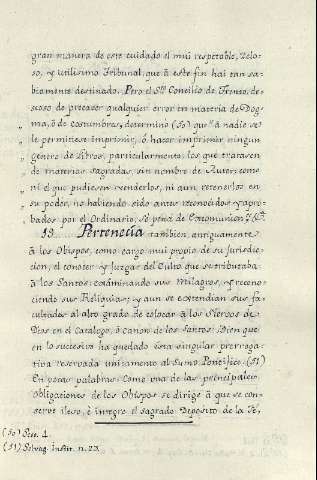 gran manera de este cuidado el mui respetable, Zelo-
so, y utilisimo Tribunal, que á este fin hai tan sa-
biamente destinado. Pero el Sto Concilio de Trento, de-
seoso de precaver qualquier error en materia de Dog-
ma, ó de costumbres, determinó (50) que " á nadie se
„ le permitiese imprimir, ó hacer imprimir ningun
„ genero de Libros, particularmente los que tratasen
„ de materias sagradas, sin nombre de Autor; como
„ ni el que pudiesen venderlos, ni aun retenerlos en
„ su poder, no habiendo sido antes reconocidos y apro-
„ bados por el Ordinario, só pena de Excomunion &.
13. Pertenecía tambien, antiguamente
á los Obispos, como cargo mui propio de su jurisdic-
cion, el conocer y juzgar del Culto que se tributaba
á los Santos: examinando sus Milagros, y recono-
ciendo sus Reliquias; y aun se extendian sus fa-
cultades al alto grado de colocar á los Siervos de
Dios en el Catalogo, ó Canon de los Santos: Bien que
en lo succesivo ha quedado esta singular prerroga-
tiva reservada unicamente al Sumo Pontifice. (51)
En pocas palabras: Como una de las principales
obligaciones de los Obispos se dirige á que se con-
serve ileso, é integro el sagrado Deposito de la Fé,
(50) Sess. 4.
(51) Selvag. Instit. n. 23.